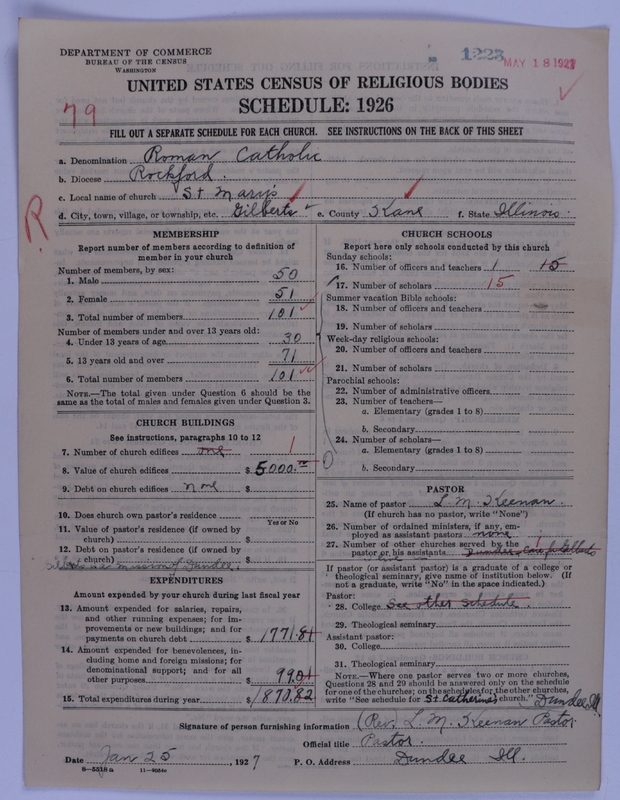 DEPARTMENT OF COMMERCE
BUREAU OF THE CENSUS
WASHINGTON
1223
MAY 18 1927
UNITED STATES CENSUS OF RELIGIOUS BODIES
SCHEDULE: 1926
79
FILL OUT A SEPARATE SCHEDULE FOR EACH CHURCH. SEE INSTRUCTIONS ON THE BACK OF THIS SHEET
a. Denomination Roman Catholic
b. Diocese Rockford.
c. Local name of church St Mary's
R
d. City, town, village, or township, etc. Gilberts e. County Kane f. State Illinois.
MEMBERSHIP
Report number of members according to definition of
member in your church
Number of members, by sex:
1. Male 50
2. Female 51
3. Total number of members 101
Number of members under and over 13 years old:
4. Under 13 years of age 30
5. 13 years old and over 71
6. Total number of members 101
NOTE.—The total given under Question 6 should be the
same as the total of males and females given under Question 3.
CHURCH BUILDINGS
See instructions, paragraphs 10 to 12
7. Number of church edifices one 1
8. Value of church edifices $ 5000.00
9. Debt on church edifices none $
10. Does church own pastor's residence
Yes or No
11. Value of pastor's residence (if owned by
church) $
12. Debt on pastor's residence (if owned by
church) $
Gilberts is a mission of Dundee.
EXPENDITURES
Amount expended by your church during last fiscal year
13. Amount expended for salaries, repairs,
and other running expenses; for im-
provements or new buildings; and for
payments on church debt $ 1771.81
14. Amount expended for benevolences, in-
cluding home and foreign missions; for
denominational support; and for all
other purposes $ 99.01
15. Total expenditures during year $ 1870.82
CHURCH SCHOOLS
Report here only schools conducted by this church
Sunday schools:
16. Number of officers and teachers 1 15
17. Number of scholars 15
Summer vacation Bible schools:
18. Number of officers and teachers
19. Number of scholars
Week-day religious schools:
20. Number of officers and teachers
21. Number of scholars
Parochial schools:
22. Number of administrative officers
23. Number of teachers—
a. Elementary (grades 1 to 8)
b. Secondary
24. Number of scholars—
a. Elementary (grades 1 to 8)
b. Secondary
PASTOR
25. Name of pastor L. M. Keenan.
(If church has no pastor, write "None")
26. Number of ordained ministers, if any, em-
ployed as assistant pastors none
27. Number of other churches served by the
pastor or his assistants 1
If pastor (or assistant pastor) is a graduate of a college or
theological seminary, give name of institution below. (If
not a graduate, write "No" in the space indicated.)
Pastor:
28. College See other schedule.
29. Theological seminary
Assistant pastor:
30. College
31. Theological seminary
NOTE.—Where one pastor serves two or more churches,
Questions 28 and 29 should be answered only on the schedule
for one of the churches; on the schedules for the other churches,
write "See schedule for St Catherine's church." Dundee Ill.
Signature of person furnishing information (Rev.) L. M. Keenan Pastor
Official title Pastor.
Date Jan 25, 1927 P. O. Address Dundee Ill.
8—5518 a 11—9054